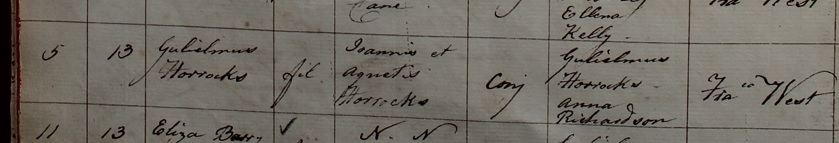 Cane
Ellena
Kelly.
West
5 13 Gulielmus Horrocks fil Joannis et Agnetis Horrocks Conj Gulielmus Horrocks Anna Richardson Fra^cus West
11 13 Eliza Barry N. N